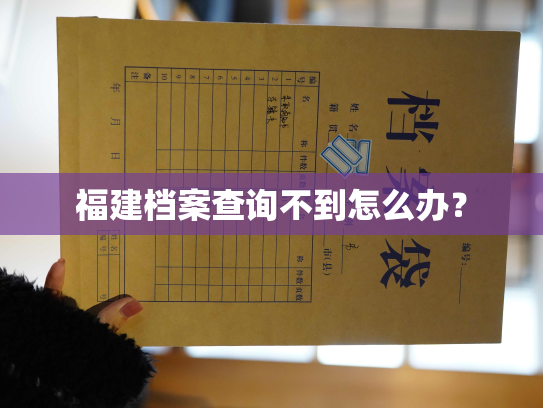 福建档案查询不到怎么办？
档案袋
编号：
姓名
籍贯
市(县)
编号 名 称 件数 页数 称 件数 页数
1
2
3
4
5
6
7
8
9
10
备注
年 月 日